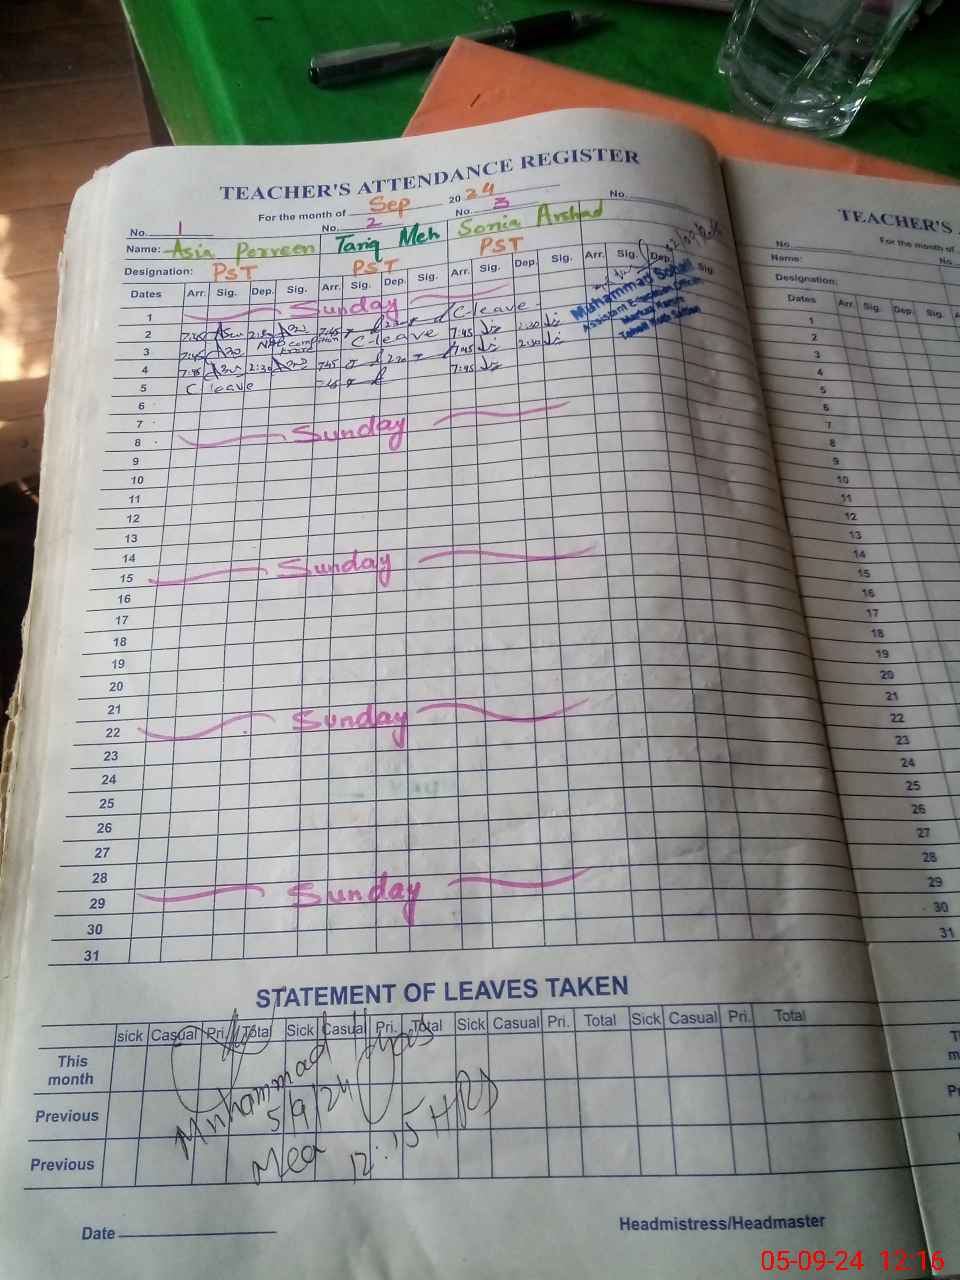 TEACHER'S ATTENDANCE REGISTER
For the month of Sep 2024
No. 1 No. 2 No. 3 No.
Name: Asia Perveen Tariq Meh Sonia Arshad
Designation: PST PST PST
Dates Arr. Sig. Dep. Sig. Arr. Sig. Dep. Sig. Arr. Sig. Dep. Sig. Arr. Sig. Dep. Sig.
1 Sunday
2 7:45 7:45 C-leave
3 7:45 C-leave 7:45 2:30
4 7:45 2:30 7:45 2:30 7:45 2:30
5 C leave 7:45 7:45
6
7
8 Sunday
9
10
11
12
13
14
15 Sunday
16
17
18
19
20
21
22 Sunday
23
24
25
26
27
28
29 Sunday
30
31
Muhammad Sohail
Assistant Education Officer
STATEMENT OF LEAVES TAKEN
Sick Casual Pri. Total Sick Casual Pri. Total Sick Casual Pri. Total Sick Casual Pri. Total
This month
Previous
Previous
Muhammad
5/9/24
Mea 12:15 HRS
Date
Headmistress/Headmaster
TEACHER'S A
For the month of
No.
No.
Name:
Designation:
Dates Arr. Sig. Dep. Sig. A
1
2
3
4
5
6
7
8
9
10
11
12
13
14
15
16
17
18
19
20
21
22
23
24
25
26
27
28
29
30
31
05-09-24 12:16